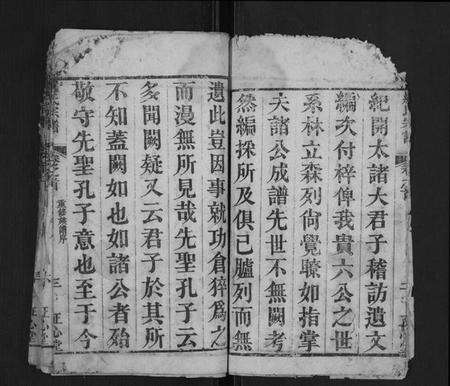 紀開太諸大君子稽訪遺文
編次付梓俾我貴六公之世
系林立森列尙覺瞭如指掌
夫諸公成譜先世不無闕考
然編採所及俱已臚列而無
遺此豈因事就功倉猝爲之
而漫無所見哉先聖孔子云
多聞闕疑又云君子於其所
不知蓋闕如也如諸公者殆
敬守先聖孔子意也至于今
卷之首
重修族譜序
三
正心堂